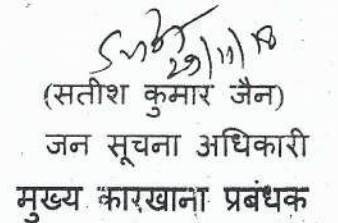 29/11/18
(सतीश कुमार जैन)
जन सूचना अधिकारी
मुख्य कारखाना प्रबंधक